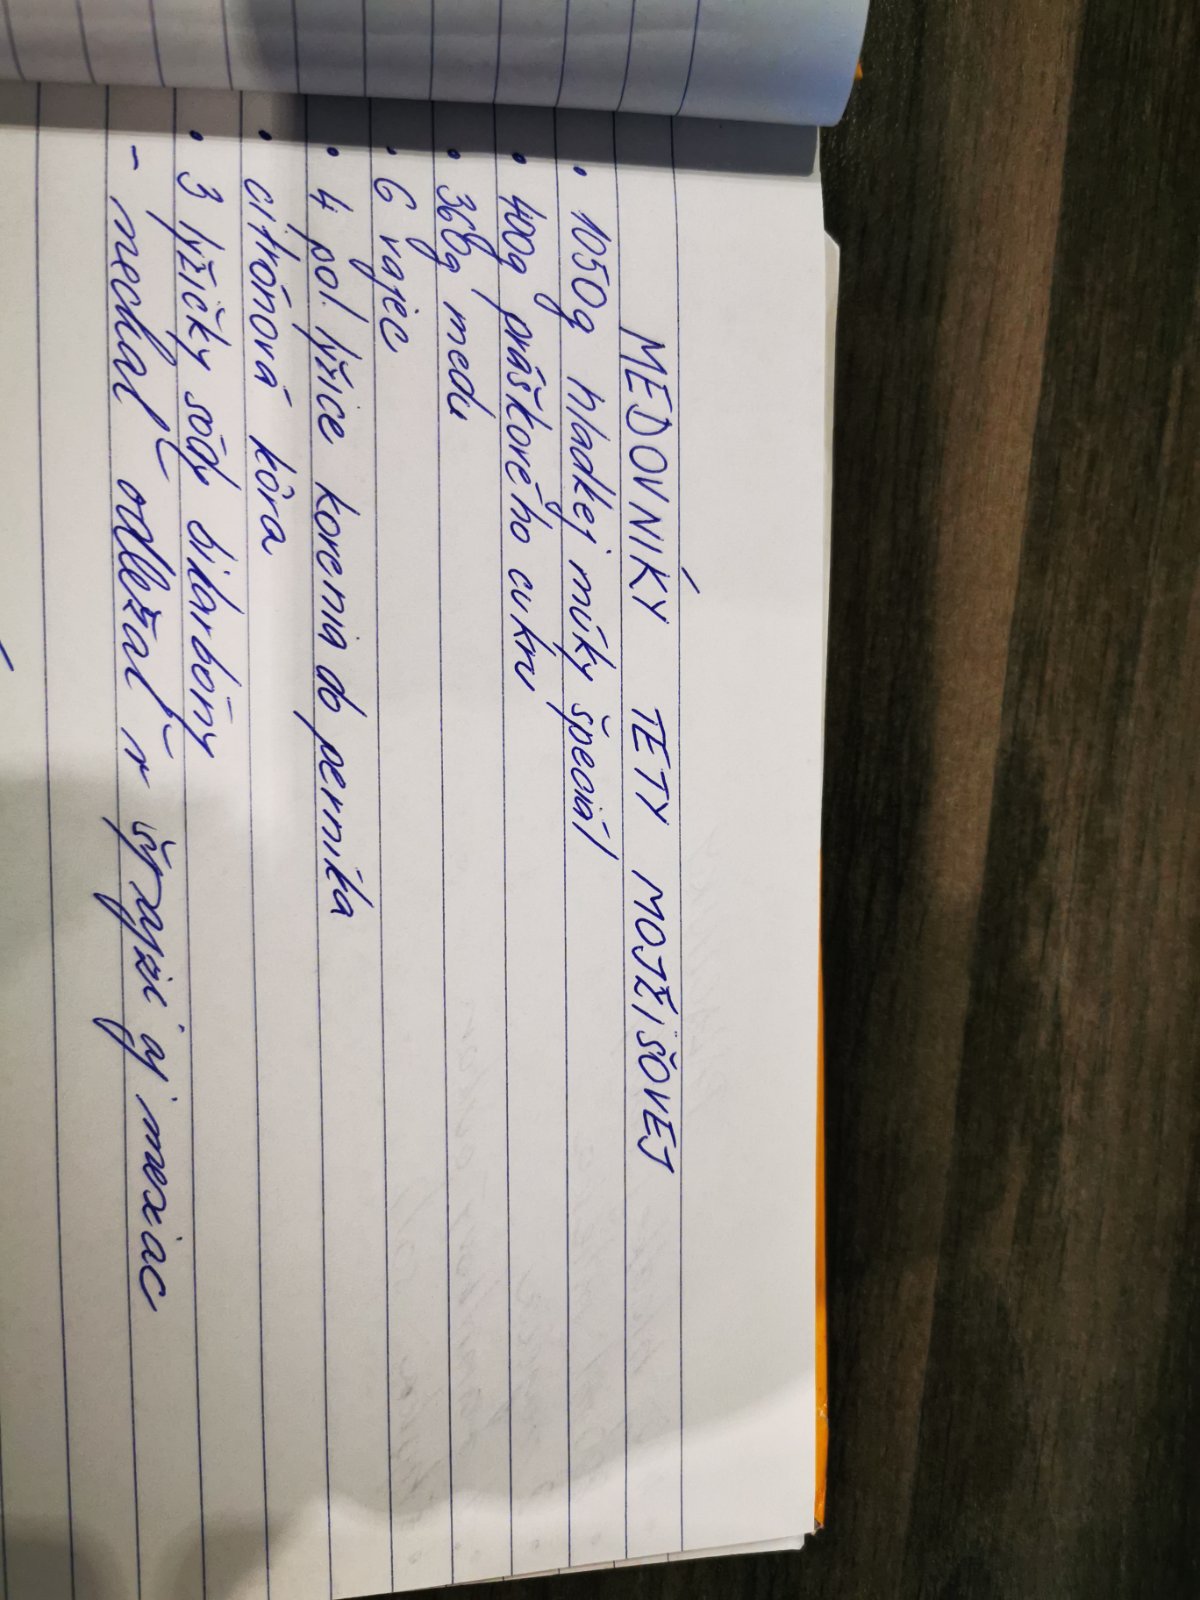 MEDOVNÍKY TETY MOJŽIŠOVEJ
• 1050g hladkej múky špeciál
• 400g práškového cukru
• 360g medu
• 6 vajec
• 4 pol. lyžice korenia do perníka
• citrónová kôra
• 3 lyžičky sódy bikarbóny
- nechať odležať v igelite aj mesiac